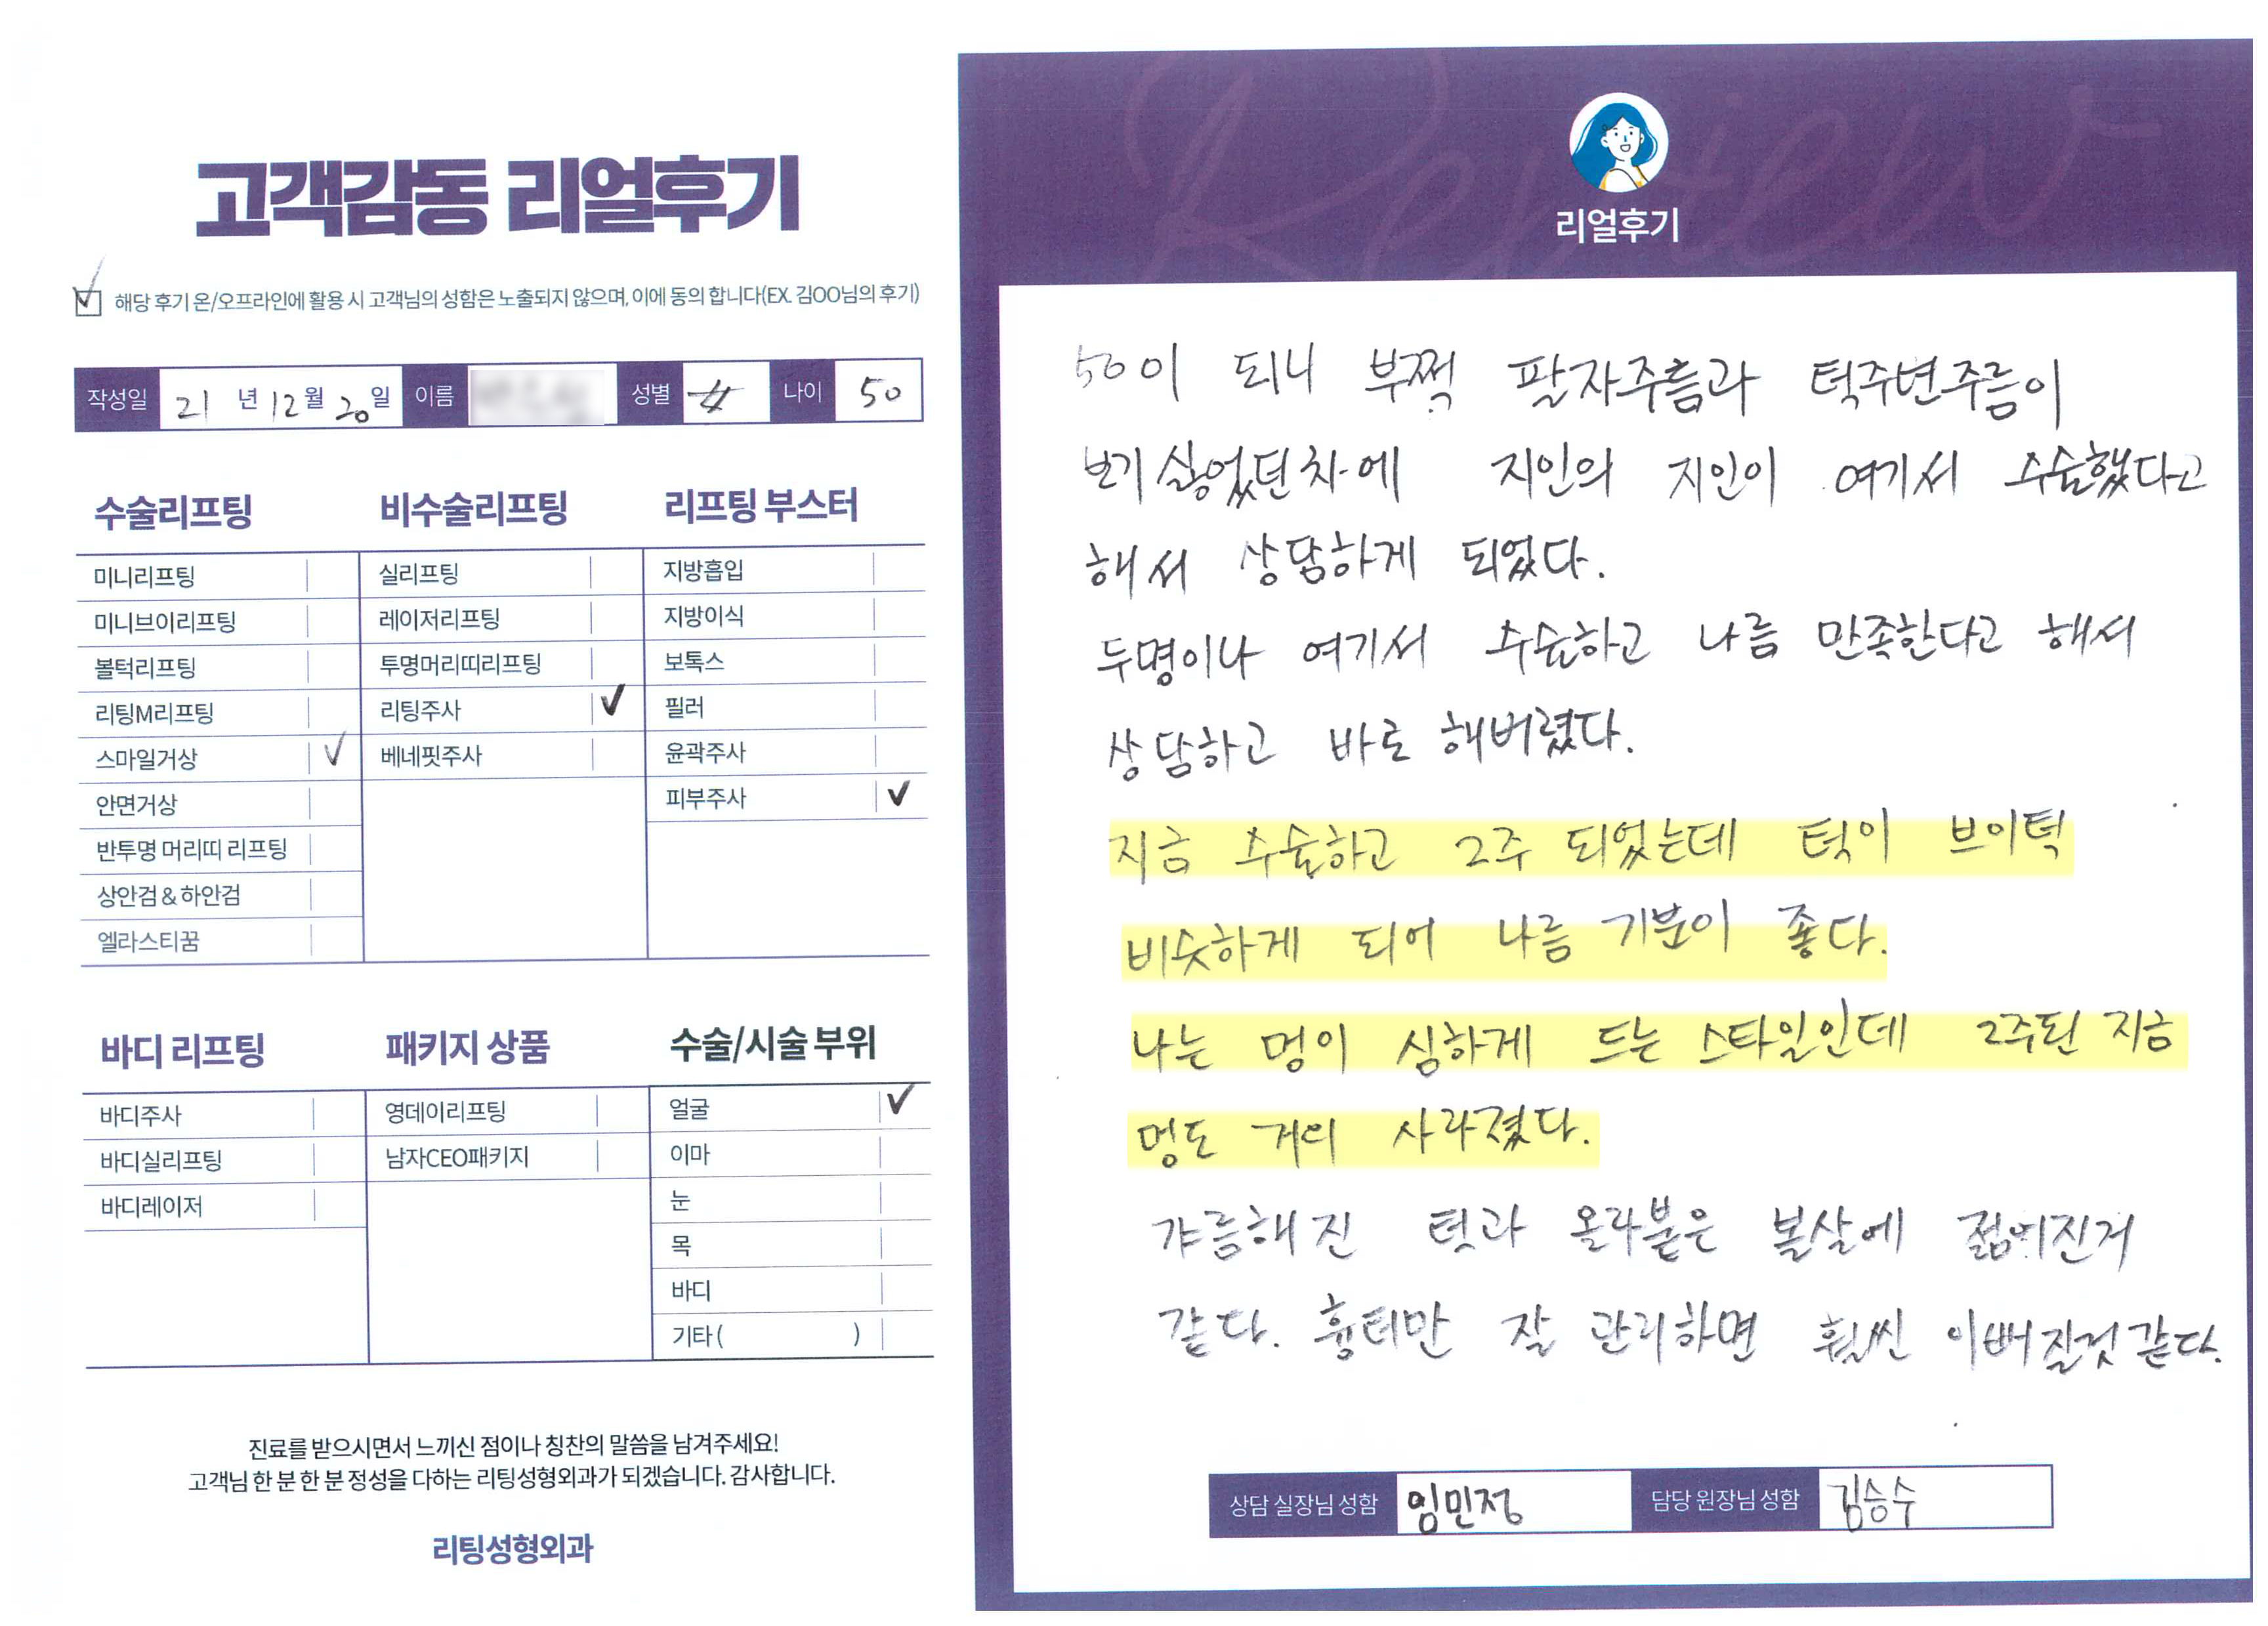 고객감동 리얼후기
해당 후기 온/오프라인에 활용 시 고객님의 성함은 노출되지 않으며, 이에 동의 합니다(EX. 김OO님의 후기)
작성일 21 년 12 월 20 일 이름 성별 女 나이 50
수술리프팅
미니리프팅
미니브이리프팅
볼턱리프팅
리팅M리프팅
스마일거상 ✓
안면거상
반투명 머리띠 리프팅
상안검 & 하안검
엘라스티꿈
비수술리프팅
실리프팅
레이저리프팅
투명머리띠리프팅
리팅주사 ✓
베네핏주사
리프팅 부스터
지방흡입
지방이식
보톡스
필러
윤곽주사
피부주사 ✓
바디 리프팅
바디주사
바디실리프팅
바디레이저
패키지 상품
영데이리프팅
남자CEO패키지
수술/시술 부위
얼굴 ✓
이마
눈
목
바디
기타 ( )
진료를 받으시면서 느끼신 점이나 칭찬의 말씀을 남겨주세요!
고객님 한 분 한 분 정성을 다하는 리팅성형외과가 되겠습니다. 감사합니다.
리팅성형외과
Review
리얼후기
50이 되니 부쩍 팔자주름과 턱주변주름이
보기 싫었던차에 지인의 지인이 여기서 수술했다고
해서 상담하게 되었다.
두명이나 여기서 수술하고 나름 만족한다고 해서
상담하고 바로 해버렸다.
지금 수술하고 2주 되었는데 턱이 브이턱
비슷하게 되어 나름 기분이 좋다.
나는 멍이 심하게 드는 스타일인데 2주된 지금
멍도 거의 사라졌다.
갸름해진 턱과 올라붙은 볼살에 젊어진거
같다. 흉터만 잘 관리하면 훨씬 이뻐질것같다.
상담 실장님 성함 임민정 담당 원장님 성함 김승수